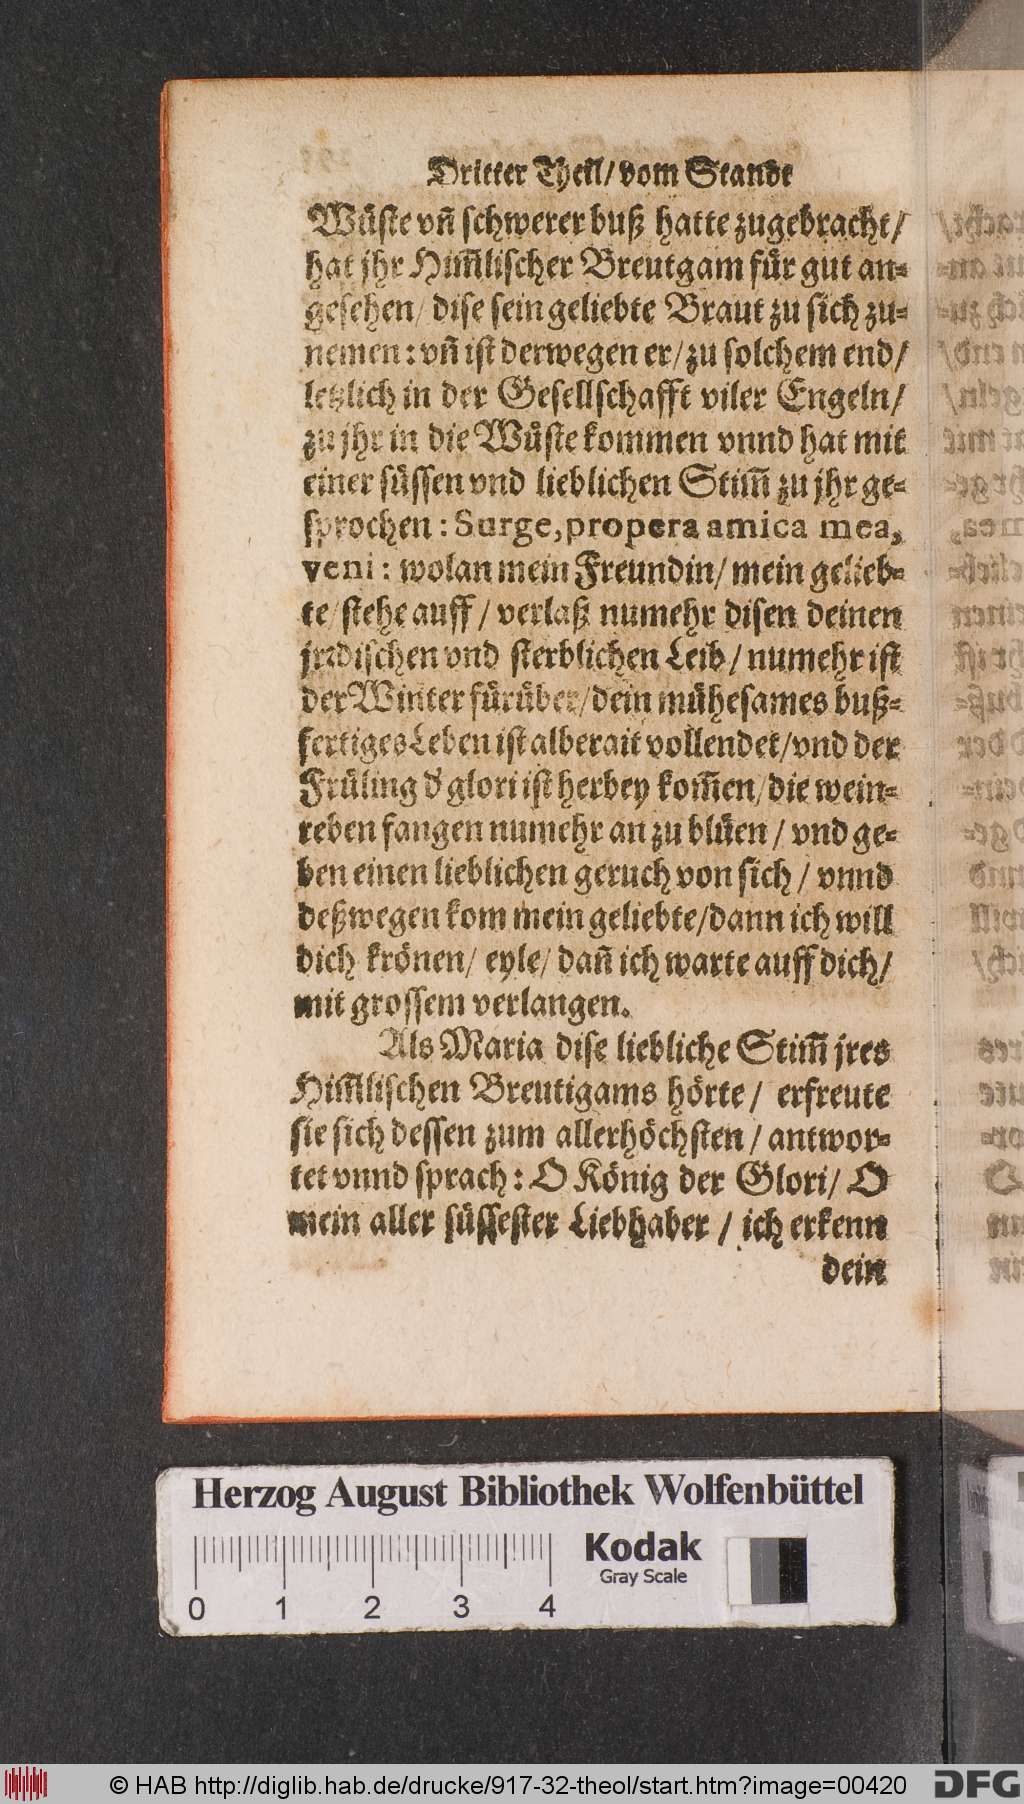 Dritter Theil/ vom Stande
Wüste vñ schwerer buß hatte zugebracht/
hat jhr Him̃lischer Breutgam für gut an=
gesehen/ dise sein geliebte Braut zu sich zu=
nemen: vñ ist derwegen er/ zu solchem end/
letzlich in der Gesellschafft viler Engeln/
zu jhr in die Wüste kommen vnnd hat mit
einer süssen vnd lieblichen Stim̃ zu jhr ge=
sprochen: Surge, propera amica mea,
veni: wolan mein Freundin/ mein gelieb=
te/ stehe auff/ verlaß numehr disen deinen
jrꝛdischen vnd sterblichen Leib/ numehr ist
der Winter fürüber/ dein mühesames buß=
fertiges Leben ist alberait vollendet/ vnd der
Früling d' glori ist herbey kom̃en/ die wein=
reben fangen numehr an zu blüen/ vnd ge=
ben einen lieblichen geruch von sich/ vnnd
deßwegen kom mein geliebte/ dann ich will
dich krönen/ eyle/ dañ ich warte auff dich/
mit grossem verlangen.
Als Maria dise liebliche Stim̃ jres
Him̃lischen Breutigams hörte/ erfreute
sie sich dessen zum allerhöchsten/ antwor=
tet vnnd sprach: O König der Glori/ O
mein aller süssester Liebhaber/ ich erkenn
dein
Herzog August Bibliothek Wolfenbüttel
Kodak
Gray Scale
0 1 2 3 4
© HAB http://diglib.hab.de/drucke/917-32-theol/start.htm?image=00420
DFG